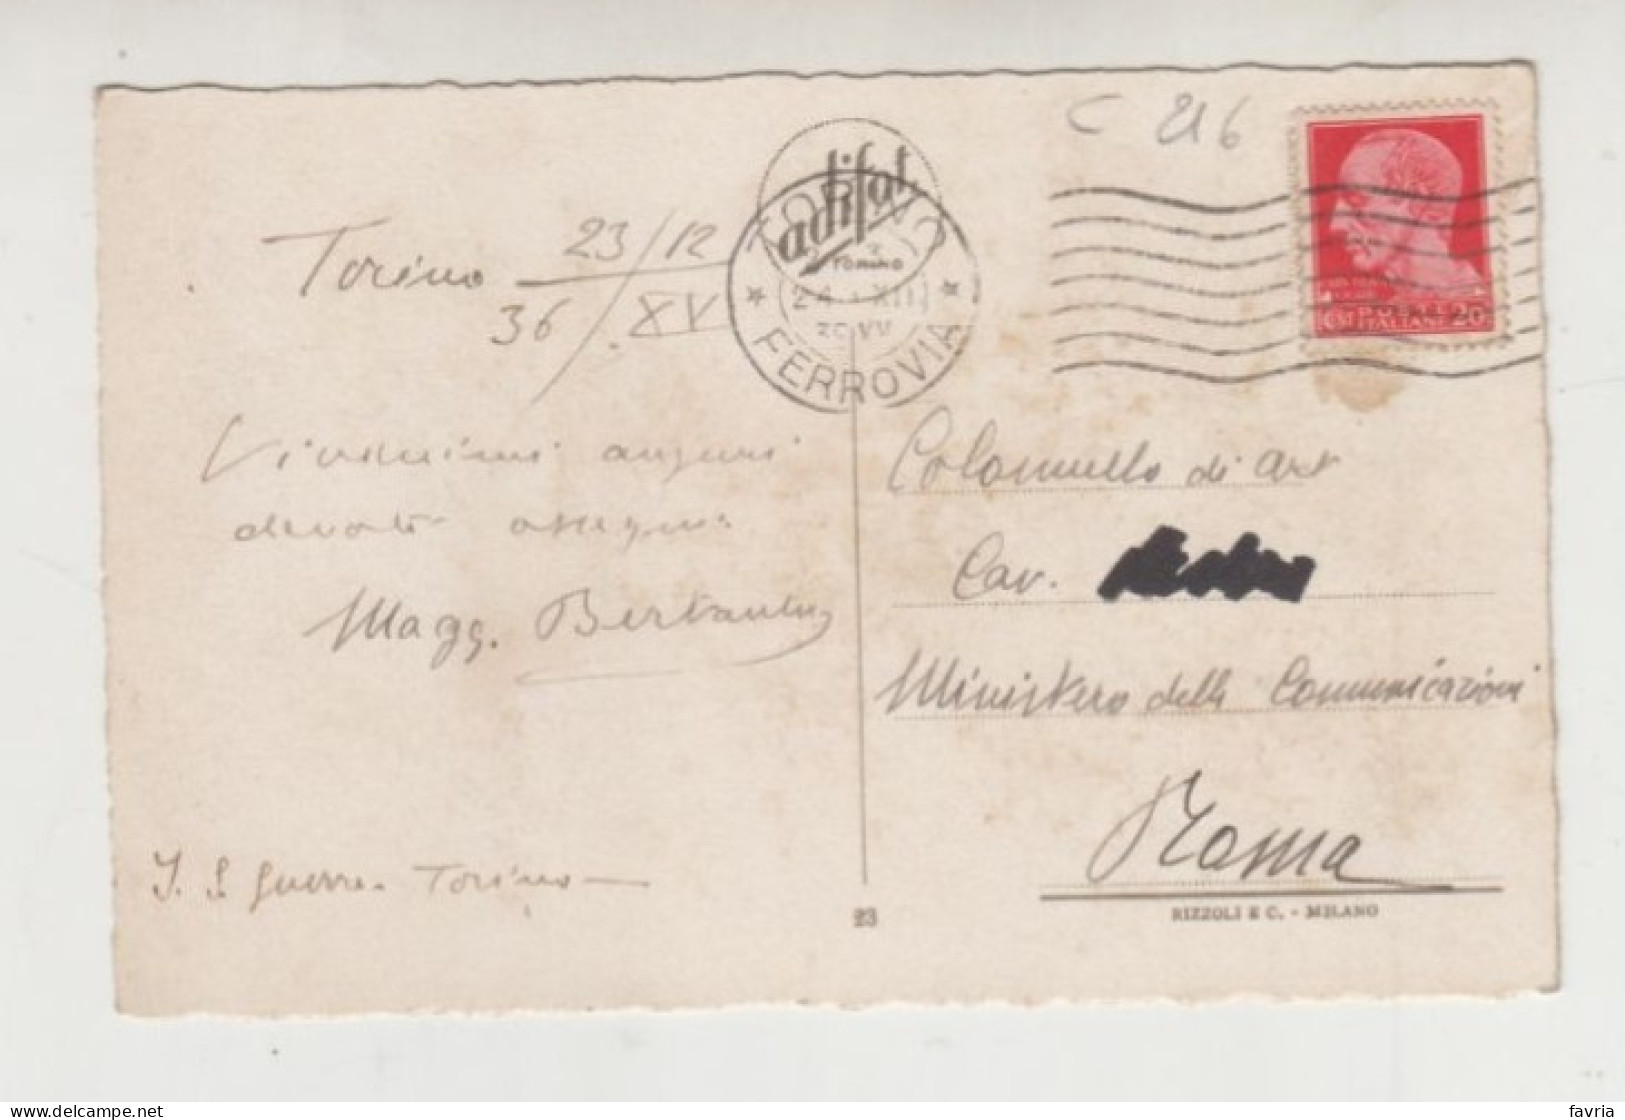 C 216
adifal
TORINO
TORINO
24 XII
36 XV
FERROVIA
Cmi 20
Torino 23/12
36 / XV
Vivissimi auguri
devoti ossequi
Magg.
I. S. Guerra. Torino
Colonnello di Art
Cav.
Ministero delle Comunicazioni
Roma
23
RIZZOLI & C. - MILANO
delcampe.net
favria